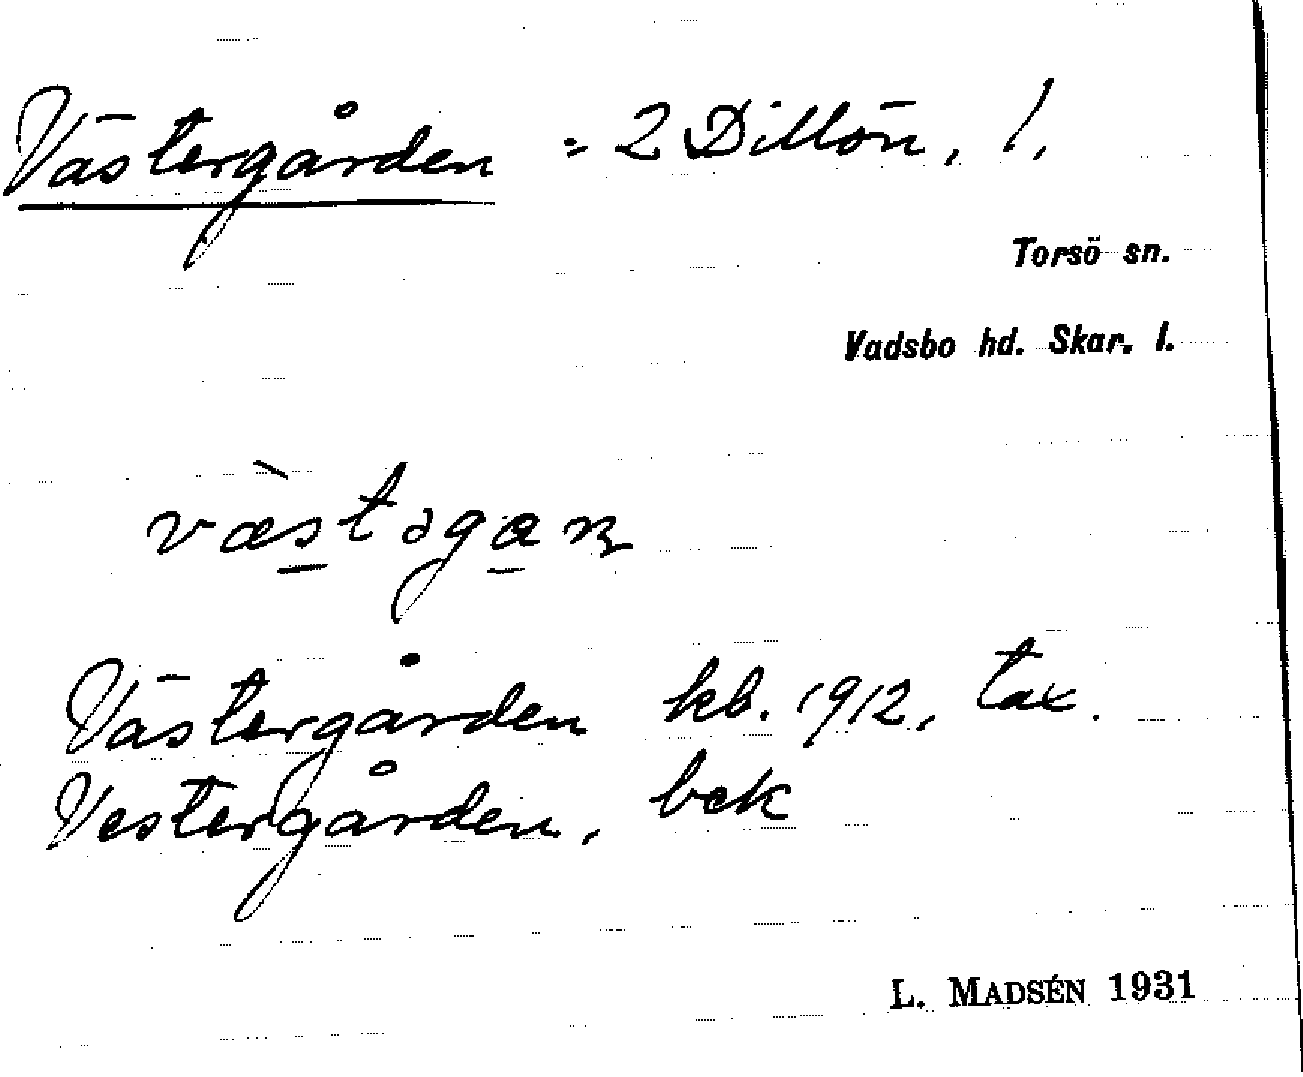 Västergården = 2 Dillön, 1,
Torsö sn.
Vadsbo hd. Skar. l.
væ̀stəgan
Västergården kb. 1912, tax.
Vestergården, bek
L. MADSÉN 1931